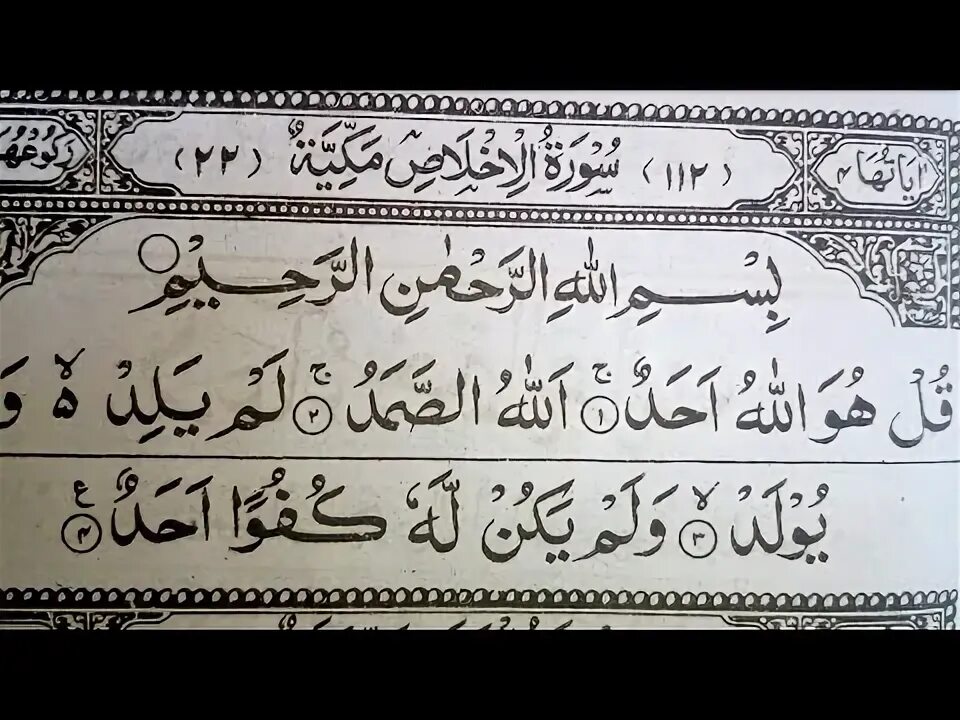 اٰيَاتُهَا ٤ (١١٢) سُوْرَةُ الْاِخْلَاصِ مَكِّيَّةٌ (٢٢) رُكُوْعُهَا
بِسْمِ اللهِ الرَّحْمٰنِ الرَّحِيْمِ
قُلْ هُوَ اللهُ اَحَدٌ ۚ ١ اَللهُ الصَّمَدُ ۚ ٢ لَمْ يَلِدْ ۙ۵ وَ
يُوْلَدْ ۙ ٣ وَلَمْ يَكُنْ لَّهٗ كُفُوًا اَحَدٌ ٤ ع